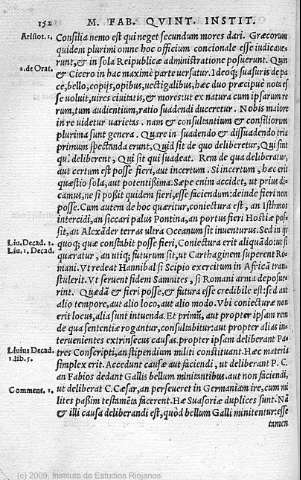 152 M. FAB. QVINT. INSTIT.
Aristot. 1. Consilia nemo est qui neget secundum mores dari. Græcorum
quidem plurimi omne hoc officium concionale esse iudicaue-
runt, & in sola Reipublicæ administratione posuerunt. Quin
2. de Orat. & Cicero in hac maximè parte versatur. Ideoq; suasuris de pa
ce, bello, copijs, opibus, vectigalibus, hæc duo præcipuè nota es
se voluit, vires ciuitatis, & mores: vt ex natura cùm ipsarum re
rum, tum audientium, ratio suadendi duceretur. Nobis maior
in re videtur varietas. nam & consultantium & consiliorum
plurima sunt genera. Quare in suadendo & dissuadendo tria
primùm spectanda erunt, Quid sit de quo deliberetur, Qui sint
qui deliberent, Qui sit qui suadeat. Rem de qua deliberatur,
aut certum est posse fieri, aut incertum. Si incertum, hæc erit
quæstio sola, aut potentissima. Sæpe enim accidet, vt prius di-
camus, ne si possit quidem fieri, esse faciendum: deinde fieri non
posse. Cùm autem de hoc quæritur, coniectura est, an Isthmos
intercidi, an siccari palus Pontina, an portus fieri Hostiæ pos
sit, an Alexāder terras vltra Oceanum sit inuenturus. Sed in ijs
Liu. Decad. 1. quoq; quæ constabit posse fieri, Coniectura erit aliquādo: vt si
Liu. 1. Decad. quæratur, an vtiq; futurum sit, vt Carthaginem superent Ro-
mani. Vt redeat Hannibal si Scipio exercitum in Africā trans
tulerit. Vt seruent fidem Samnites, si Romani arma deposue-
rint. Quædā & fieri posse, & futura esse credibile est: sed aut
alio tempore, aut alio loco, aut alio modo. Vbi coniecturæ non
erit locus, alia sunt intuenda. Et primū, aut propter ipsam rem
de qua sententiæ rogantur, consultabitur: aut propter alias in-
teruenientes extrinsecus causas. propter ipsam deliberant Pa-
Liuius Decad. tres Conscripti, an stipendium militi constituant. Hæc materia
1. lib. 5. simplex erit. Accedunt causæ aut faciendi, vt deliberat P. C.
an Fabios dedant Gallis bellum minitantibus. aut non faciendi,
Comment. 1. vt deliberat C. Cæsar, an perseueret in Germaniam ire, cum mi
lites passim testamēta facerent. Hæ Suasoriæ duplices sunt. Nā
& illi causa deliberandi est, quòd bellum Galli minitentur: esse
tamen
(c) 2009, Instituto de Estudios Riojanos